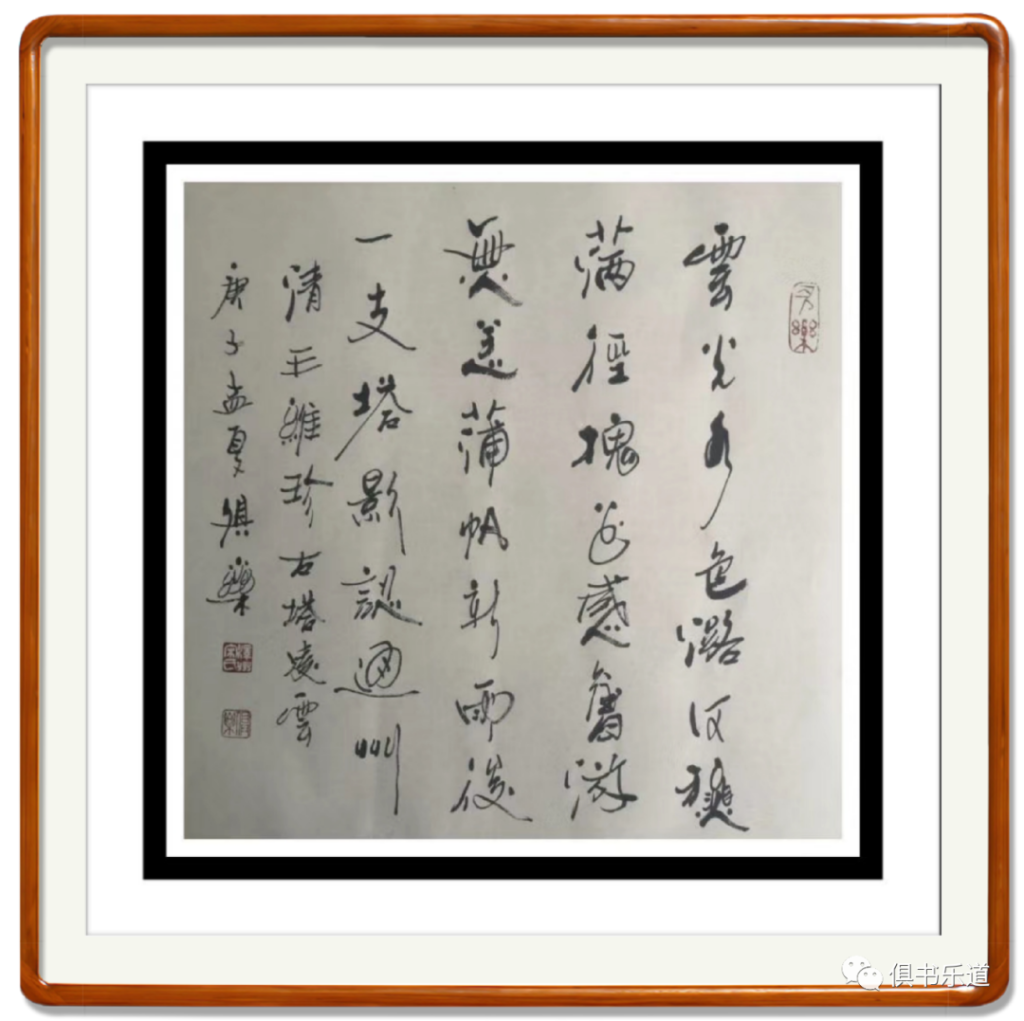 雲光水色潞河秋
滿徑槐花感舊游
無恙蒲帆新雨後
一支塔影認通州
清王維珍古塔凌雲
庚子孟夏俱樂
俱书乐道